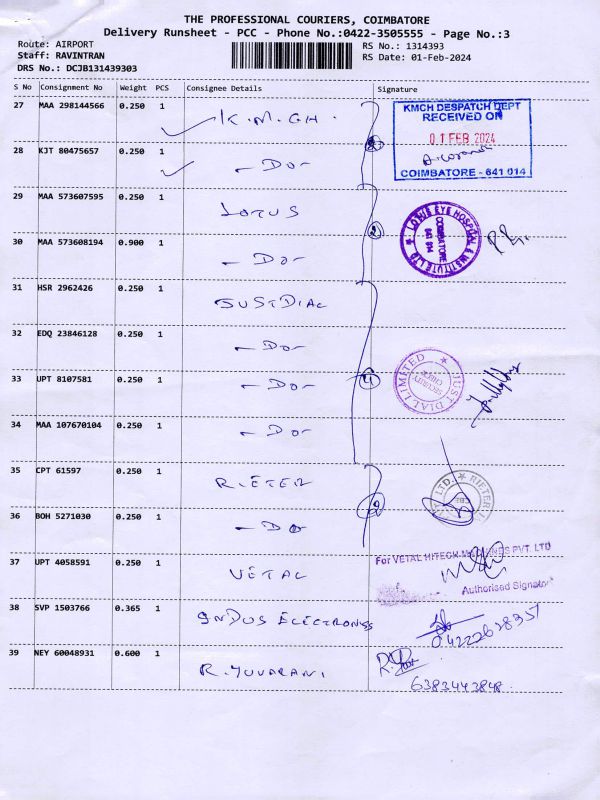 THE PROFESSIONAL COURIERS, COIMBATORE
Delivery Runsheet - PCC - Phone No.:0422-3505555 - Page No.:3
Route: AIRPORT RS No.: 1314393
Staff: RAVINTRAN RS Date: 01-Feb-2024
DRS No.: DCJB131439303
S No Consignment No Weight PCS Consignee Details Signature
27 MAA 298144566 0.250 1 K.M.C.H.
KMCH DESPATCH DEPT
RECEIVED ON
01 FEB 2024
COIMBATORE - 641 014
28 KJT 80475657 0.250 1 - Do -
29 MAA 573607595 0.250 1 LOTUS
2
LOTUS EYE HOSPITAL & INSTITUTE LTD
COIMBATORE
641 014
30 MAA 573608194 0.900 1 - Do -
31 HSR 2962426 0.250 1 JUSTDIAL
32 EDQ 23846128 0.250 1 - Do -
33 UPT 8107581 0.250 1 - Do -
4
JUST DIAL LIMITED
SECURITY
34 MAA 107670104 0.250 1 - Do -
35 CPT 61597 0.250 1 RIETER
2
LTD. RIETER
CBE
36 BOH 5271030 0.250 1 - Do
37 UPT 4058591 0.250 1 VETAL
For VETAL HITECH MACHINES PVT. LTD
Authorised Signator
38 SVP 1503766 0.365 1 INDUS ELECTRONICS
04222628357
39 NEY 60048931 0.600 1 R. YUVARANI
6383443848